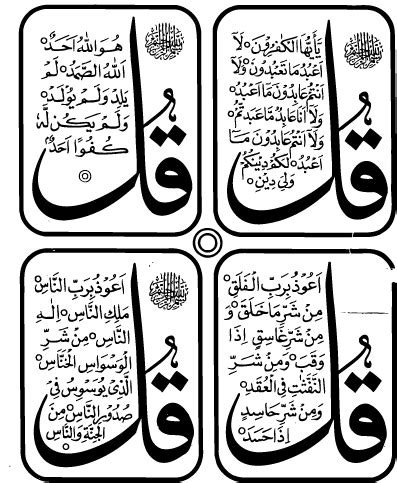 بسم الله الرحمن الرحيم
قُلْ
يٰٓاَيُّهَا الْكٰفِرُوْنَ ۙ لَآ
اَعْبُدُ مَا تَعْبُدُوْنَ ۙ وَلَآ
اَنْتُمْ عَابِدُوْنَ مَآ اَعْبُدُ ۚ
وَلَآ اَنَا عَابِدٌ مَّا عَبَدْتُّمْ ۙ
وَلَآ اَنْتُمْ عَابِدُوْنَ مَآ
اَعْبُدُ ۗ لَكُمْ دِيْنُكُمْ
وَلِيَ دِيْنِ
بسم الله الرحمن الرحيم
قُلْ
هُوَ اللّٰهُ اَحَدٌ ۚ
اَللّٰهُ الصَّمَدُ ۚ لَمْ
يَلِدْ ۙ وَلَمْ يُوْلَدْ ۙ
وَلَمْ يَكُنْ لَّهٗ
كُفُوًا اَحَدٌ
قُلْ
اَعُوْذُ بِرَبِّ الْفَلَقِ ۙ
مِنْ شَرِّ مَا خَلَقَ ۙ وَ
مِنْ شَرِّ غَاسِقٍ اِذَا
وَقَبَ ۙ وَمِنْ شَرِّ
النَّفّٰثٰتِ فِي الْعُقَدِ ۙ
وَمِنْ شَرِّ حَاسِدٍ
اِذَا حَسَدَ
بسم الله الرحمن الرحيم
قُلْ
اَعُوْذُ بِرَبِّ النَّاسِ ۙ
مَلِكِ النَّاسِ ۙ اِلٰهِ
النَّاسِ ۙ مِنْ شَرِّ
الْوَسْوَاسِ الْخَنَّاسِ ۙ
الَّذِيْ يُوَسْوِسُ فِيْ
صُدُوْرِ النَّاسِ ۙ مِنَ
الْجِنَّةِ وَالنَّاسِ